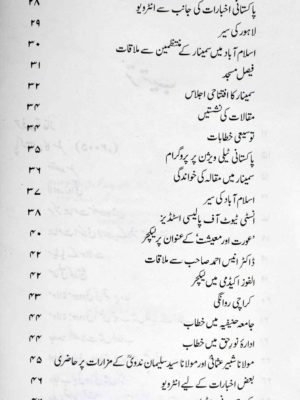 پاکستانی اخبارات کی جانب سے انٹرویو ۲۸
لاہور کی سیر ۲۹
اسلام آباد میں سیمینار کے منتظمین سے ملاقات ۳۰
فیصل مسجد ۳۱
سیمینار کا افتتاحی اجلاس ۳۲
مقالات کی نشستیں ۳۴
توسیعی خطابات ۳۴
پاکستانی ٹیلی ویژن پر پروگرام ۳۵
سیمینار میں مقالہ کی خواندگی ۳۶
اسلام آباد کی سیر ۳۷
انسٹی ٹیوٹ آف پالیسی اسٹڈیز ۳۸
’عورت اور معیشت‘ کے عنوان پر لیکچر ۴۰
ڈاکٹر انیس احمد صاحب سے ملاقات ۴۲
الفوز اکیڈمی میں لیکچر ۴۲
کراچی روانگی ۴۳
جامعہ حنیفیہ میں خطاب ۴۴
ادارۂ نور حق میں خطاب ۴۴
مولانا شبیر عثمانی اور مولانا سید سلیمان ندوی کے مزارات پر حاضری ۴۵
بعض اخبارات کے لیے انٹرویو ۴۶